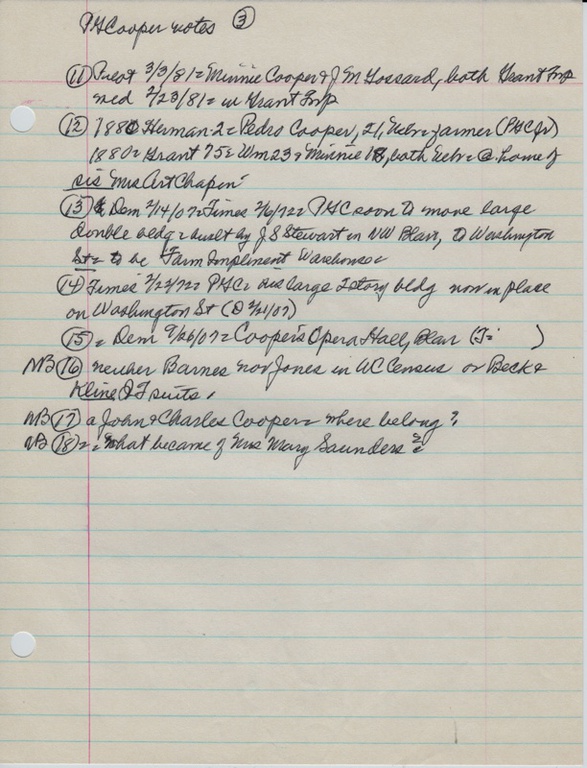 PHCooper notes ③
⑪ Pilot 3/3/81= Minnie Cooper & J M Gossard, both Grant Twp
med 2/23/81= in Grant Twp
⑫ 1880 Herman-2= Pedro Cooper, 21, Nebr= farmer (PHCJr)
1880= Grant 75= Wm 23 & Minnie 18, both Nebr= @ home of
sis Mrs Art Chapin
⑬ Dem 2/14/07= Times 2/6/72= PHC soon to move large
double bldg= built by J S Stewart in NW Blair, to Washington
St= to be Farm Implement Warehouse=
⑭ Times 2/22/72= PHC= his large 2 story bldg now in place
on Washington St (D 2/21/07)
⑮ = Dem 9/26/07= Cooper's Opera Hall, Blair (T= )
NB ⑯ neither Barnes nor Jones in WC Census or Beck &
Kline QT suits.
NB ⑰ a John & Charles Cooper= where belong?
NB ⑱ = = What became of Mrs Mary Saunders